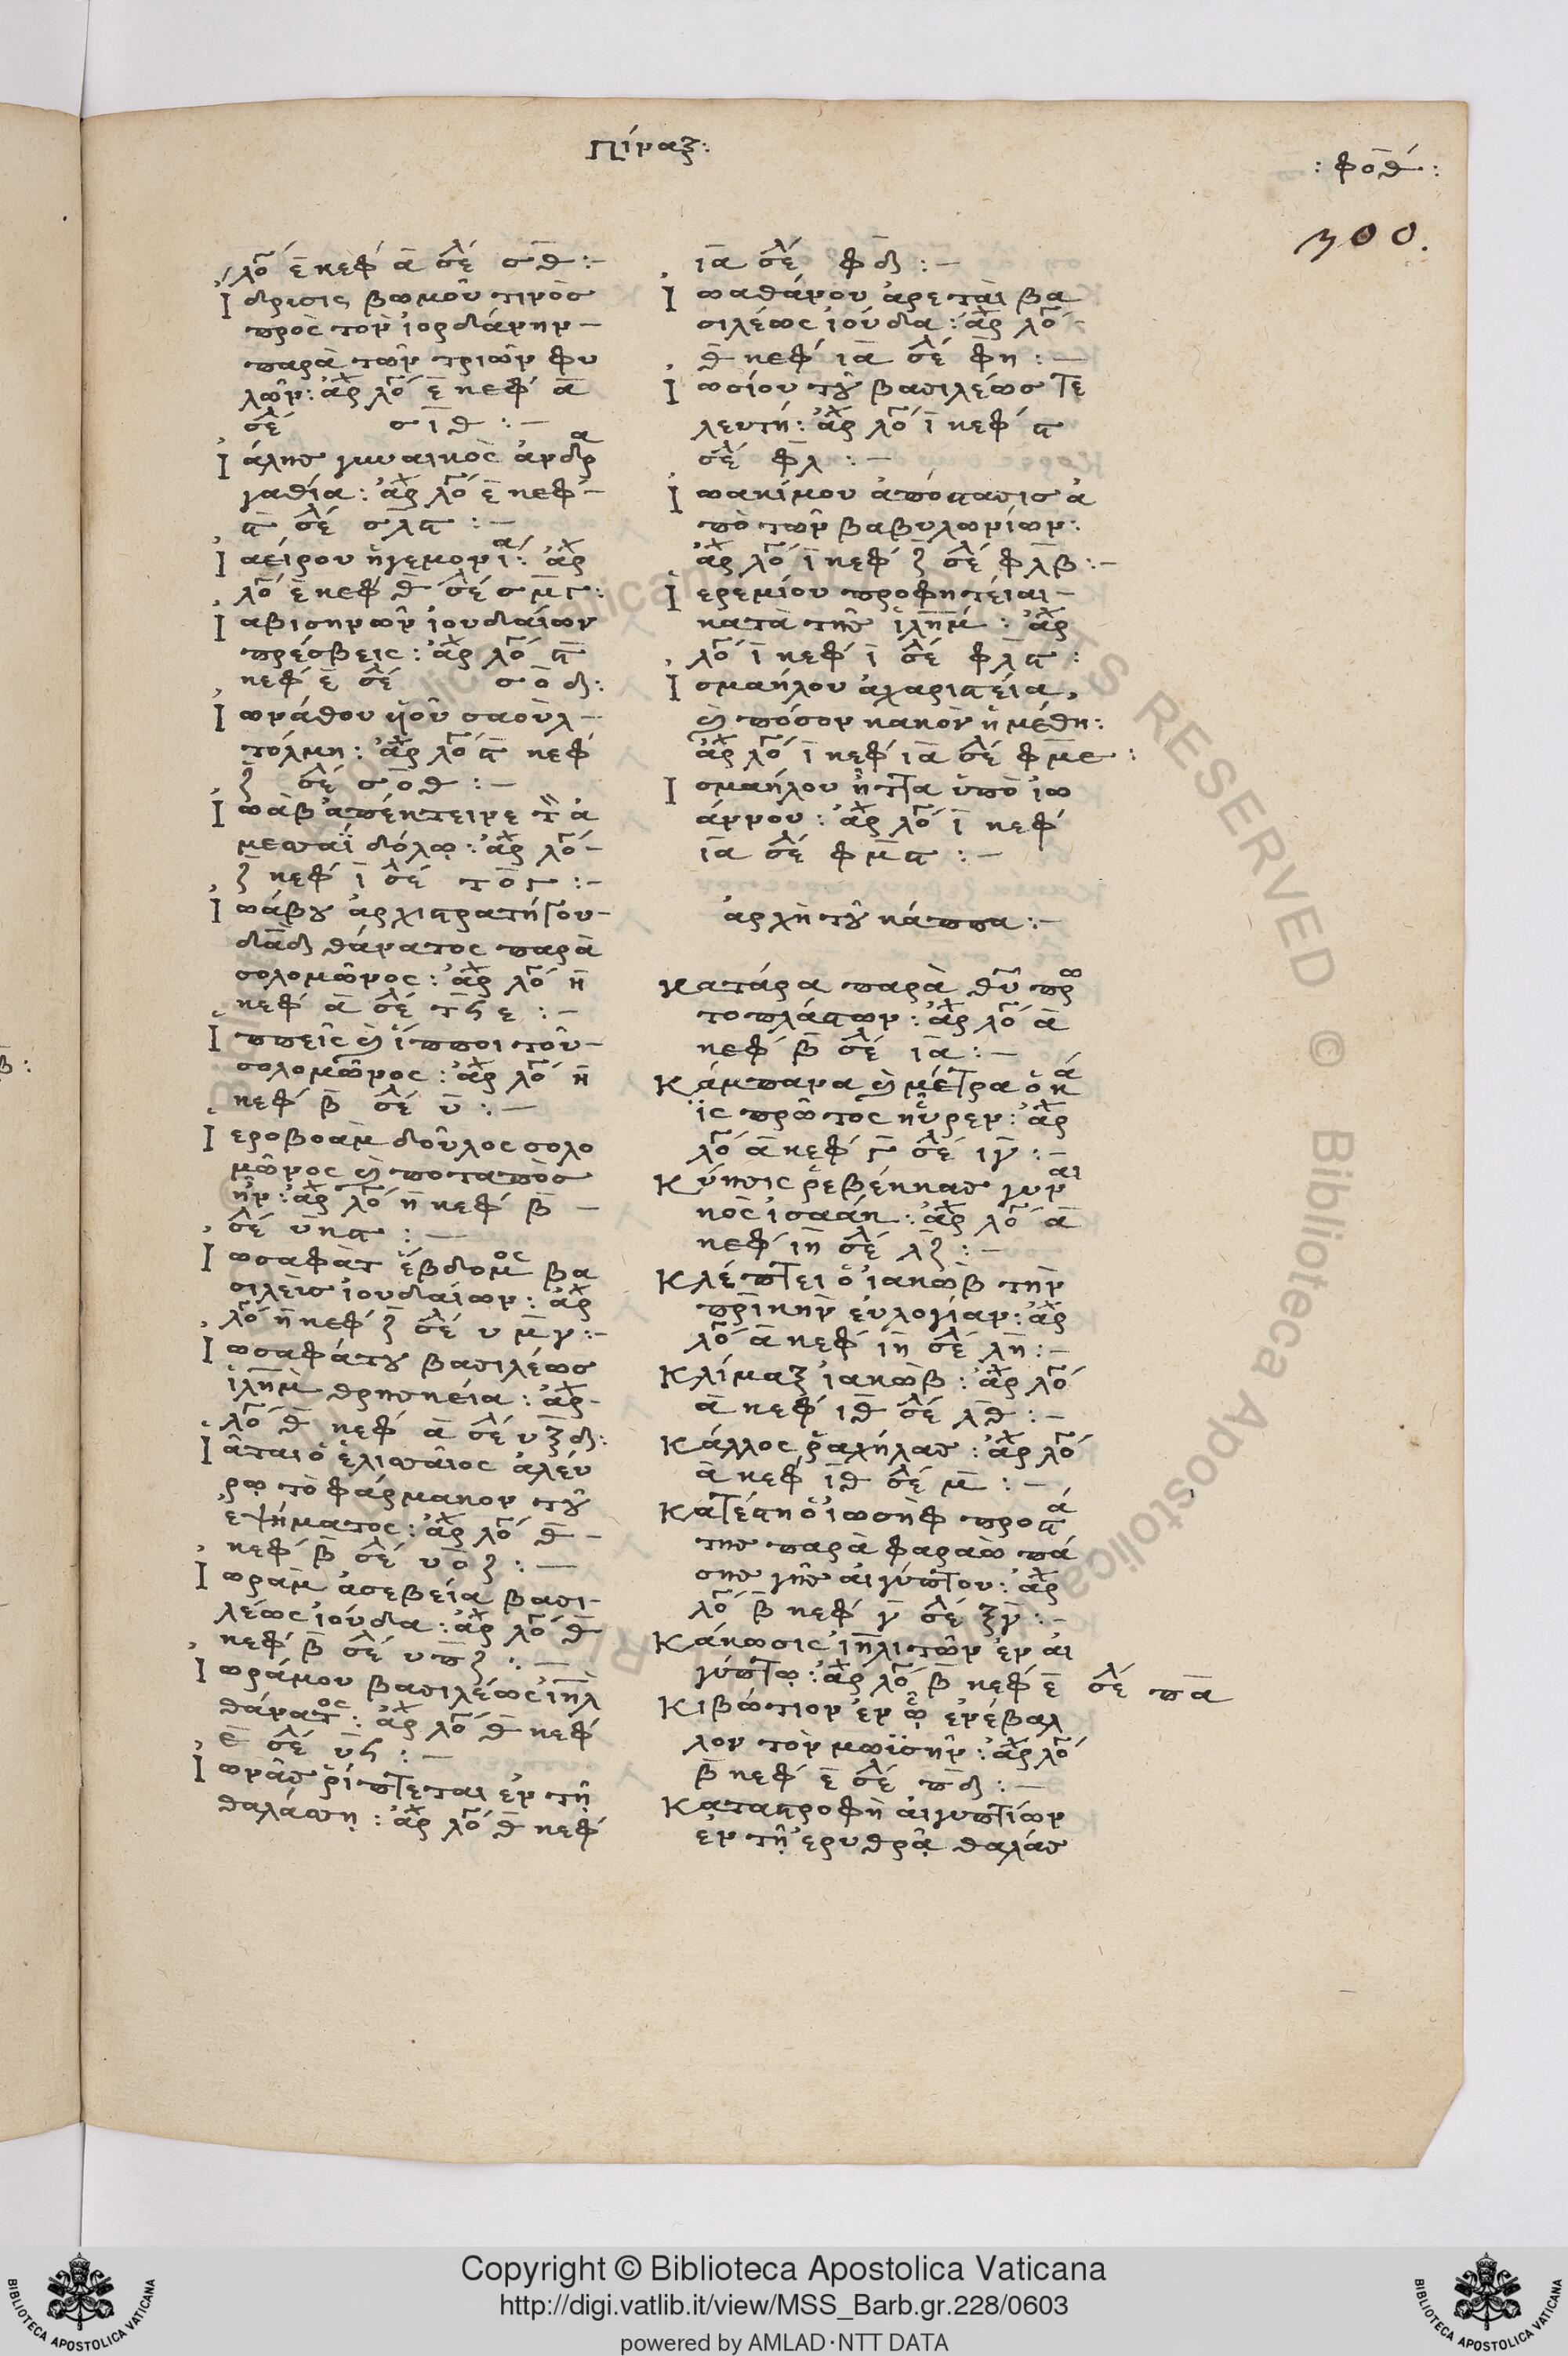 Πίναξ:
: φοθ´ :
300.
λό ε κεφ´ α σέ σθ :-
Ἵδρυσις βωμοῦ τινὸς
πρὸς τὸν ἰορδάνην -
παρὰ τῶν τριῶν φυ
λῶν: ἀρχ λό ε κεφ´ α
σέ σιθ :-
Ἰάλης γυναικὸς ἀνδρα
γαθία: ἀρχ λό ε κεφ´ -
ϛ σέ σλϛ :-
Ἰαείρου ἡγεμονία: ἀρχ
λό ε κεφ´ θ σέ σμϛ:
Ἰαβισηνῶν ἰουδαίων
πρέσβεις: ἀρχ λό ϛ
κεφ´ ε σέ σοδ:
Ἰωνάθου υἱοῦ σαοὺλ -
τόλμη: ἀρχ λό ϛ κεφ´
ζ σέ σοθ :-
Ἰωὰβ ἀπέκτεινε τ ἀ
μεσσαῒ δόλῳ: ἀρχ λό -
ζ κεφ´ ι σέ τογ :-
Ἰωάβου ἀρχιστρατήγου -
δαδ θάνατος παρὰ
σολομῶνος: ἀρχ λό η
κεφ´ α σέ τϟε :-
Ἱππεῖς καὶ ἵπποι τοῦ -
σολομῶνος: ἀρχ λό η
κεφ´ β σέ υ :-
Ἱεροβοὰμ δοῦλος σολο
μῶνος καὶ ποταπὸς
ἦν: ἀρχ λό η κεφ´ β -
σέ υκϛ :-
Ἰωσαφὰτ ἕβδομος βα
σιλεὺς ἰουδαίων: ἀρχ
λό η κεφ´ ζ σέ υμγ :-
Ἰωσαφάτου βασιλέως
ἱλημ θρησκεία: ἀρχ -
λό θ κεφ´ α σέ υξδ:
Ἰᾶται ὁ ἑλισσαῖος ἀλεύ
ρῳ τὸ φάρμακον τοῦ
ἑψήματος: ἀρχ λό θ -
κεφ´ β σέ υοζ :-
Ἰωρὰμ ἀσεβεία βασι-
λέως ἰούδα: ἀρχ λό θ
κεφ´ β σέ υπζ :-
Ἰωράμου βασιλέως ἰηλ
θάνατος: ἀρχ λό θ κεφ´
ε σέ υϟ :-
Ἰωνᾶς ῥίπτεται ἐν τῇ
θαλάσσῃ: ἀρχ λό θ κεφ´
ια σέ φδ :-
Ἰωαθάνου ἀρεταὶ βα
σιλέως ἰούδα: ἀρχ λό -
θ κεφ´ ια σέ φη :-
Ἰωσίου τοῦ βασιλέως τε
λευτή: ἀρχ λό ι κεφ´ ϛ
σέ φλ :-
Ἰωακίμου ἀπόστασις ἀ
πὸ τῶν βαβυλωνίων:
ἀρχ λό ι κεφ´ ζ σέ φλβ :-
Ἱερεμίου προφητείαι -
κατὰ τῆς ἱλημ: ἀρχ
λό ι κεφ´ ι σέ φλϛ :
Ἰσμαήλου ἀχαριστεία,
καὶ πόσον κακὸν ἡ μέθη:
ἀρχ λό ι κεφ´ ια σέ φμε :
Ἰσμαήλου ἧττα ὑπὸ ἰω
άννου: ἀρχ λό ι κεφ´
ια σέ φμϛ :-
ἀρχὴ τοῦ κάππα :-
Κατάρα παρὰ θυ πρω
τοπλάστων: ἀρχ λό α
κεφ´ β σέ ια :-
Κάμπανα καὶ μέτρα ὁ κά
ϊς πρῶτος ηὗρεν: ἀρχ
λό α κεφ´ γ σέ ιγ :-
Κύησις ῥεβέκκας γυναι
κὸς ἰσαάκ: ἀρχ λό α
κεφ´ ιη σέ λζ :-
Κλέπτει ὁ ἰακὼβ τὴν
πρικὴν εὐλογίαν: ἀρχ
λό α κεφ´ ιη σέ λη :-
Κλίμαξ ἰακώβ: ἀρχ λό
α κεφ´ ιθ σέ λθ :-
Κάλλος ῥαχήλας: ἀρχ λό
α κεφ´ ιθ σέ μ :-
Κατέστη ὁ ἰωσὴφ προστά
της παρὰ φαραὼ πά
σης γῆς αἰγύπτου: ἀρχ
λό β κεφ´ γ σέ ξγ :-
Κάκωσις ἰηλιτῶν ἐν αἰ
γύπτῳ: ἀρχ λό β κεφ´ ε σέ πα
Κιβώτιον ἐν ᾧ ἐνέβαλ
λον τὸν μωϊσῆν: ἀρχ λό
β κεφ´ ε σέ πδ :-
Καταστροφὴ αἰγυπτίων
ἐν τῇ ἐρυθρᾷ θαλάσ
Copyright © Biblioteca Apostolica Vaticana
http://digi.vatlib.it/view/MSS_Barb.gr.228/0603
powered by AMLAD·NTT DATA